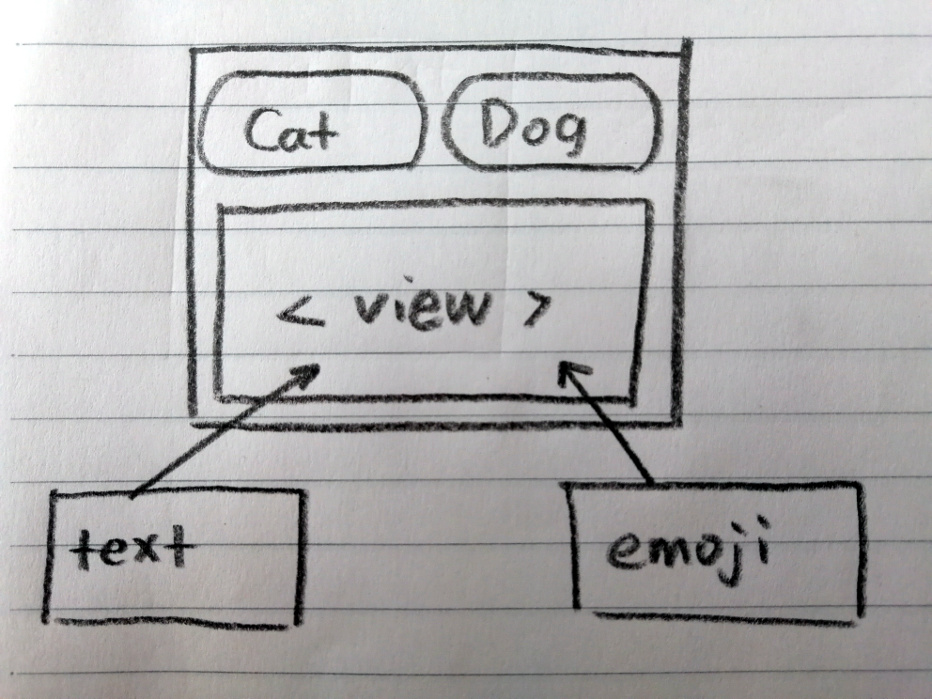 Cat
Dog
< view >
text
emoji